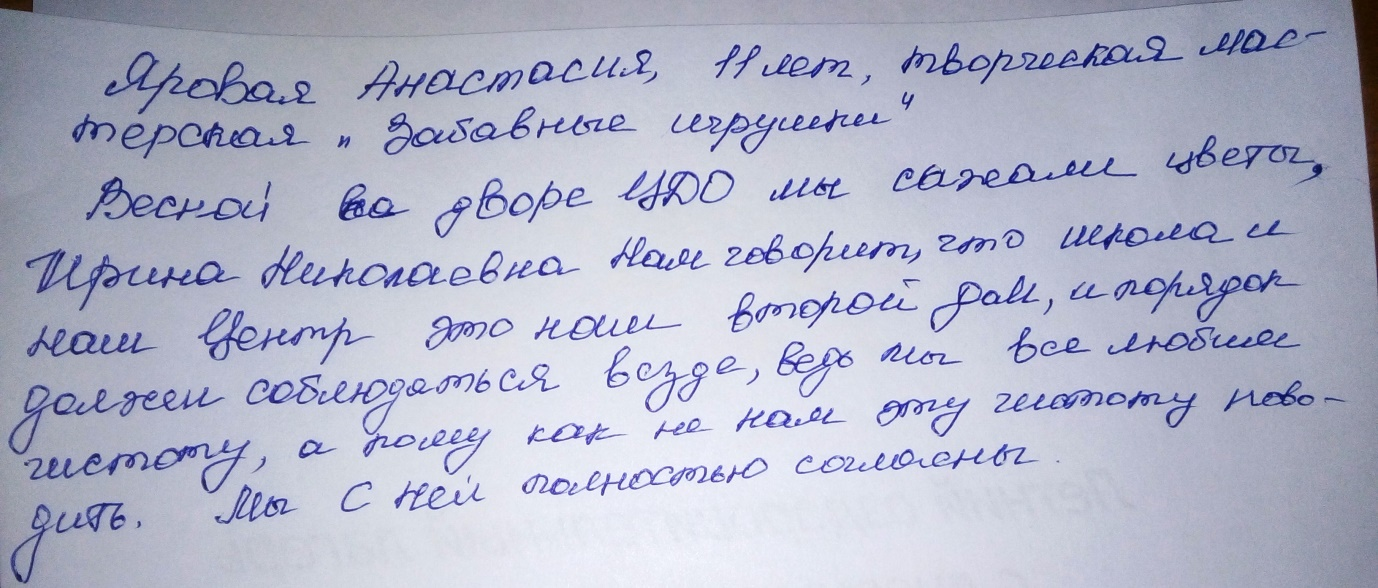 Яровая Анастасия, 11 лет, творческая мас-
терская „Забавные игрушки“
Весной во дворе ЦДО мы сажали цветы,
Ирина Николаевна нам говорит, что школа и
наш Центр это наш второй дом, и порядок
должен соблюдаться везде, ведь мы все любим
чистоту, а кому как не нам эту чистоту наво-
дить. Мы с ней полностью согласны.